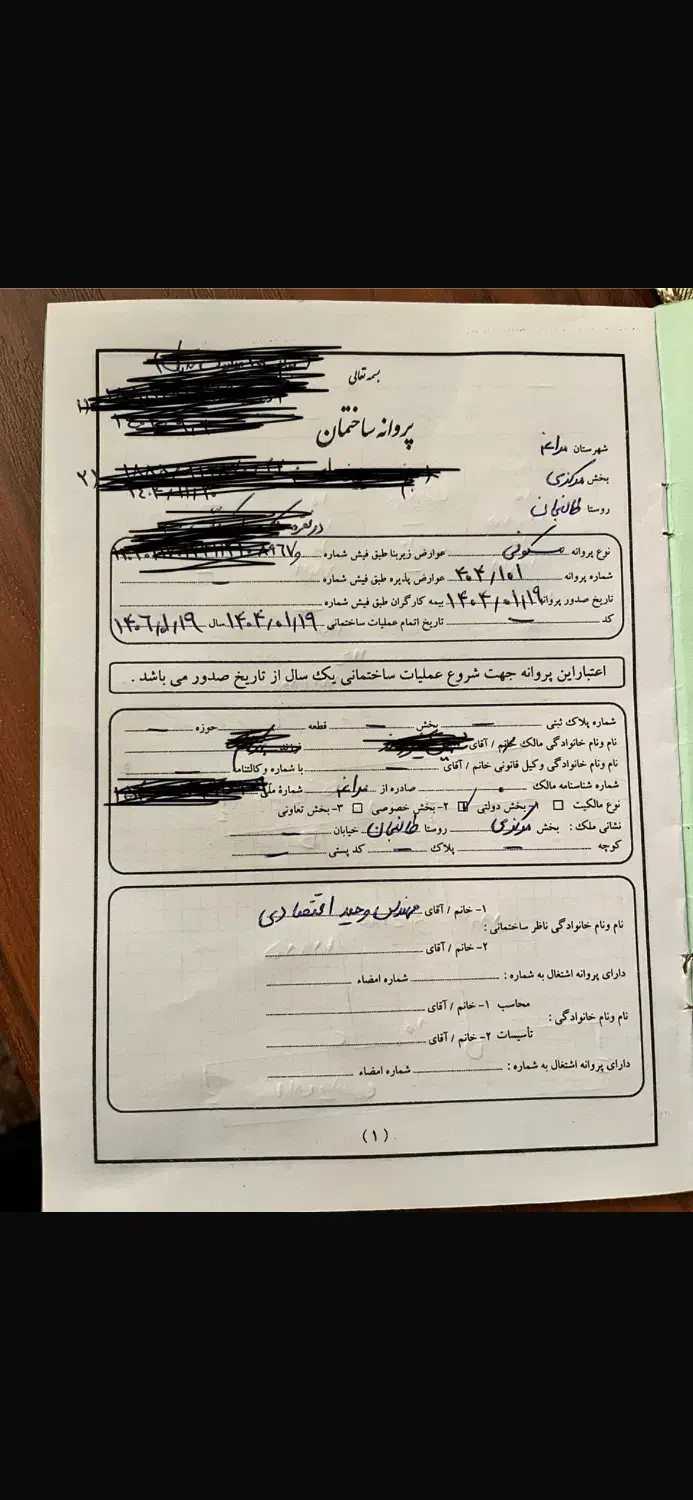 بسمه تعالی
پروانه ساختمان
شهرستان مراغه
بخش مرکزی
روستا طالبخان
۲)
نوع پروانه مسکونی عوارض زیربنا طبق فیش شماره
شماره پروانه ۴۰۴/۱۰۱ عوارض پذیره طبق فیش شماره —
تاریخ صدور پروانه ۱۴۰۴/۰۱/۱۹ بیمه کارگران طبق فیش شماره
کد — تاریخ اتمام عملیات ساختمانی ۱۴۰۴/۰۱/۱۹ سال ۱۴۰۶/۰۱/۱۹
اعتبار این پروانه جهت شروع عملیات ساختمانی یک سال از تاریخ صدور می باشد .
شماره پلاک ثبتی — بخش — قطعه حوزه —
نام ونام خانوادگی مالک خانم / آقای
نام ونام خانوادگی وکیل قانونی خانم / آقای — با شماره وکالتنامه —
شماره شناسنامه مالک صادره از مراغه شماره ملی
نوع مالکیت ۱- بخش دولتی ۲- بخش خصوصی ۳- بخش تعاونی
نشانی ملک : بخش مرکزی روستا طالبخان خیابان —
کوچه — پلاک — کد پستی —
۱- خانم / آقای مهندس وحید اقتصادی
نام ونام خانوادگی ناظر ساختمانی :
۲- خانم / آقای
دارای پروانه اشتغال به شماره : شماره امضاء
محاسب ۱- خانم / آقای
نام ونام خانوادگی :
تأسیسات ۲- خانم / آقای
دارای پروانه اشتغال به شماره : شماره امضاء
(۱)